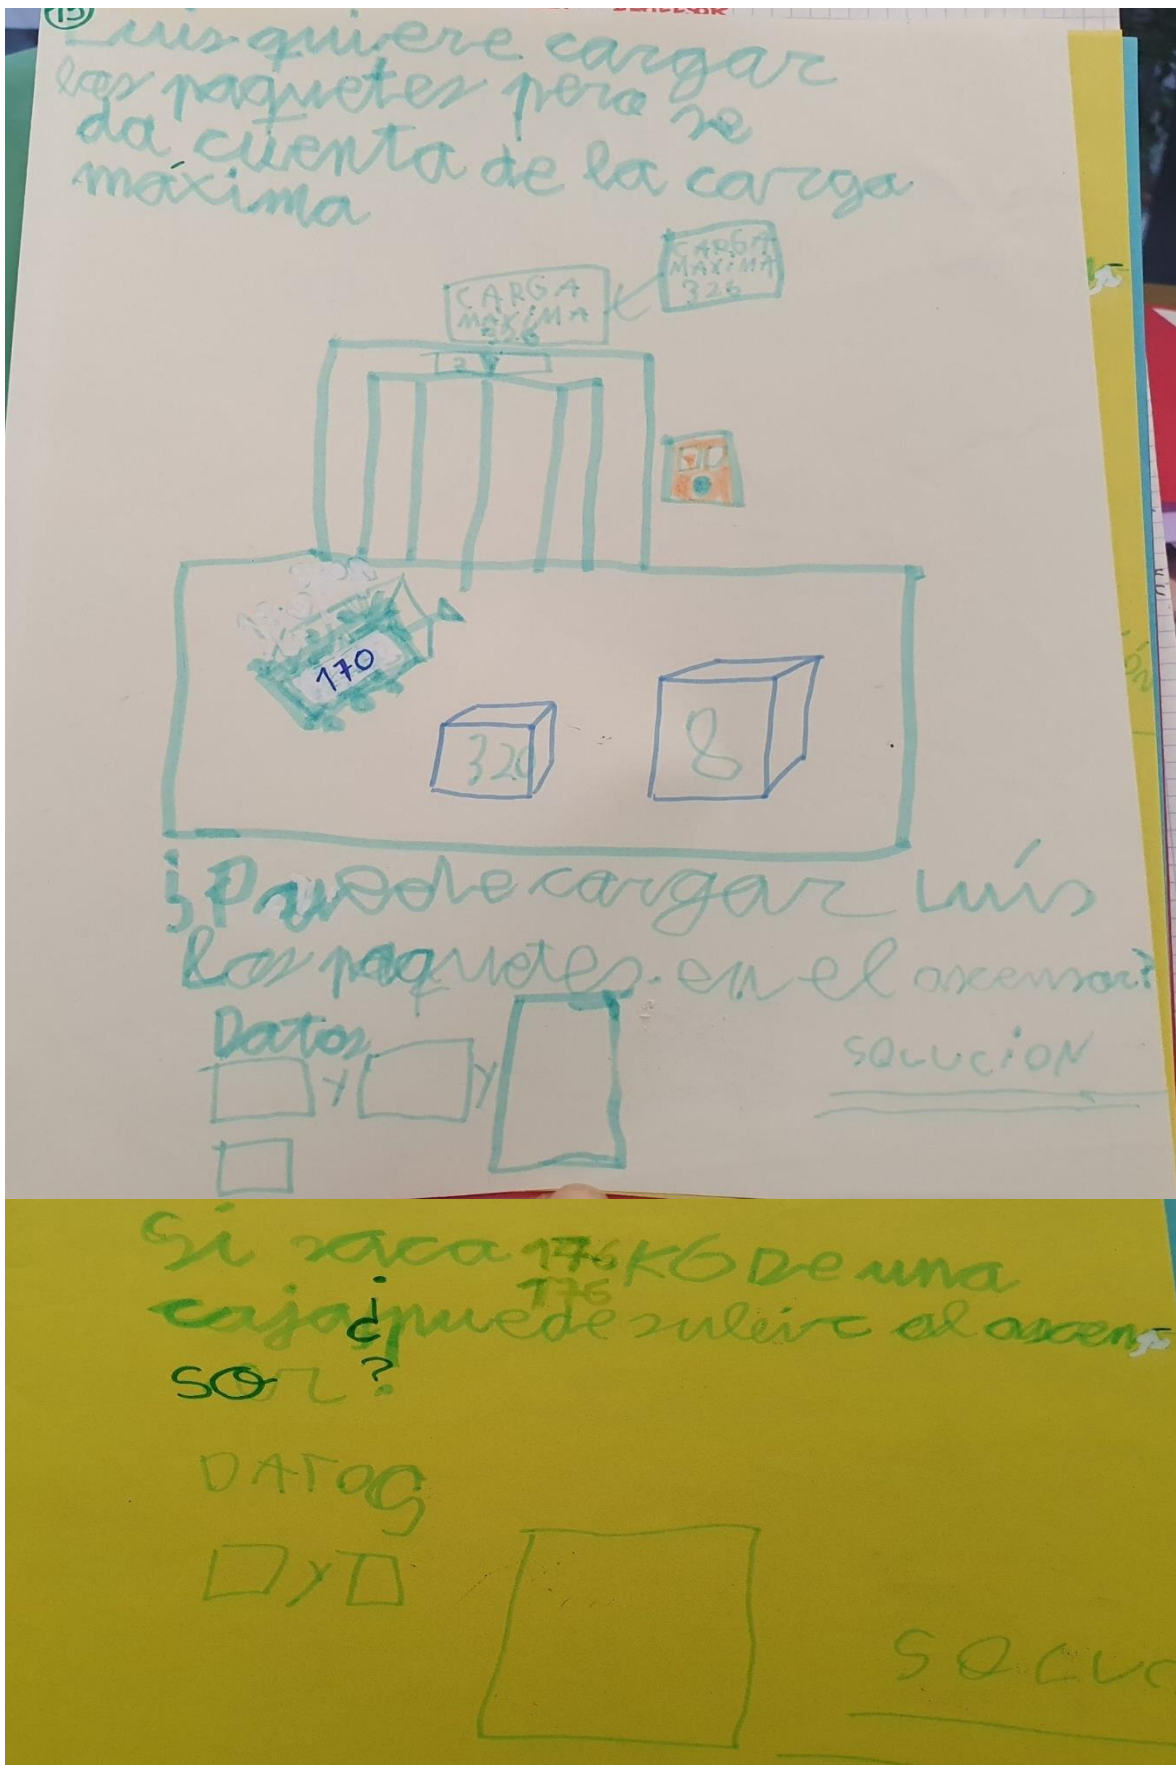 13
Luis quiere cargar
los paquetes pero se
da cuenta de la carga
máxima
CARGA
MAXIMA
326
CARGA
MAXIMA
2
170
320
8
¿Puede cargar Luís
los paquetes en el ascensor?
Datos
y y
SOLUCIÓN
Si saca 176 KG De una
176
caja ¿puede subir al ascen-
sor?
DATOS
y
SOLUC